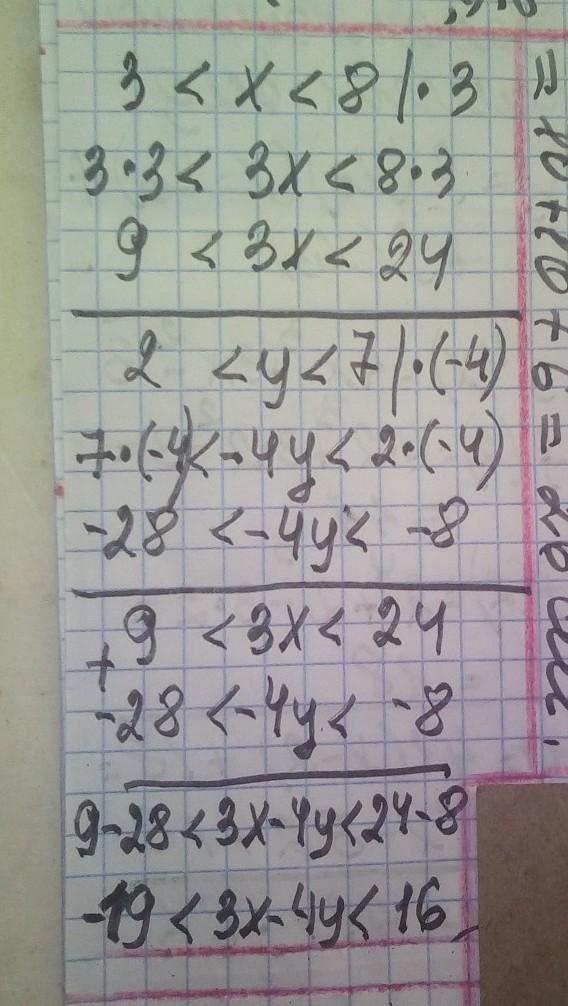 3 < x < 8 | · 3
3·3 < 3x < 8·3
9 < 3x < 24
2 < y < 7 | · (-4)
7·(-4) < -4y < 2·(-4)
-28 < -4y < -8
+ 9 < 3x < 24
-28 < -4y < -8
9-28 < 3x-4y < 24-8
-19 < 3x-4y < 16